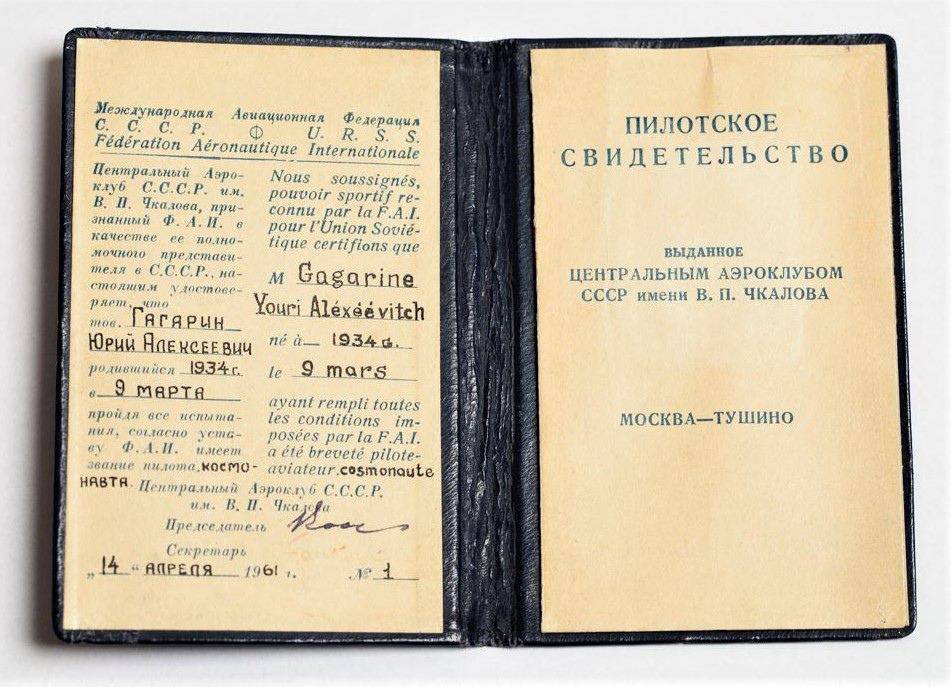 Международная Авиационная Федерация
С. С. С. Р. Ф U. R. S. S.
Fédération Aéronautique Internationale
Центральный Аэро-
клуб С.С.С.Р. им.
В. П. Чкалова, при-
знанный Ф. А. И. в
качестве ее полно-
мочного представи-
теля в С.С.С.Р., на-
стоящим удостове-
ряет, что
тов. ГАГАРИН
ЮРИЙ АЛЕКСЕЕВИЧ
родившийся 1934 г.
в 9 МАРТА
пройдя все испыта-
ния, согласно уста-
ву Ф.А.И. имеет
звание пилота. космо-
навта.
Nous soussignés,
pouvoir sportif re-
connu par la F.A.I.
pour l'Union Sovié-
tique certifions que
M Gagarine
Youri Aléxéévitch
né à 1934 a.
le 9 mars
ayant rempli toutes
les conditions im-
posées par la F.A.I.
a été breveté pilote-
aviateur. cosmonaute
Центральный Аэроклуб С.С.С.Р.
им. В. П. Чкалова
Председатель
Секретарь
„14“ АПРЕЛЯ 1961 г. № 1
ПИЛОТСКОЕ
СВИДЕТЕЛЬСТВО
ВЫДАННОЕ
ЦЕНТРАЛЬНЫМ АЭРОКЛУБОМ
СССР имени В. П. ЧКАЛОВА
МОСКВА—ТУШИНО